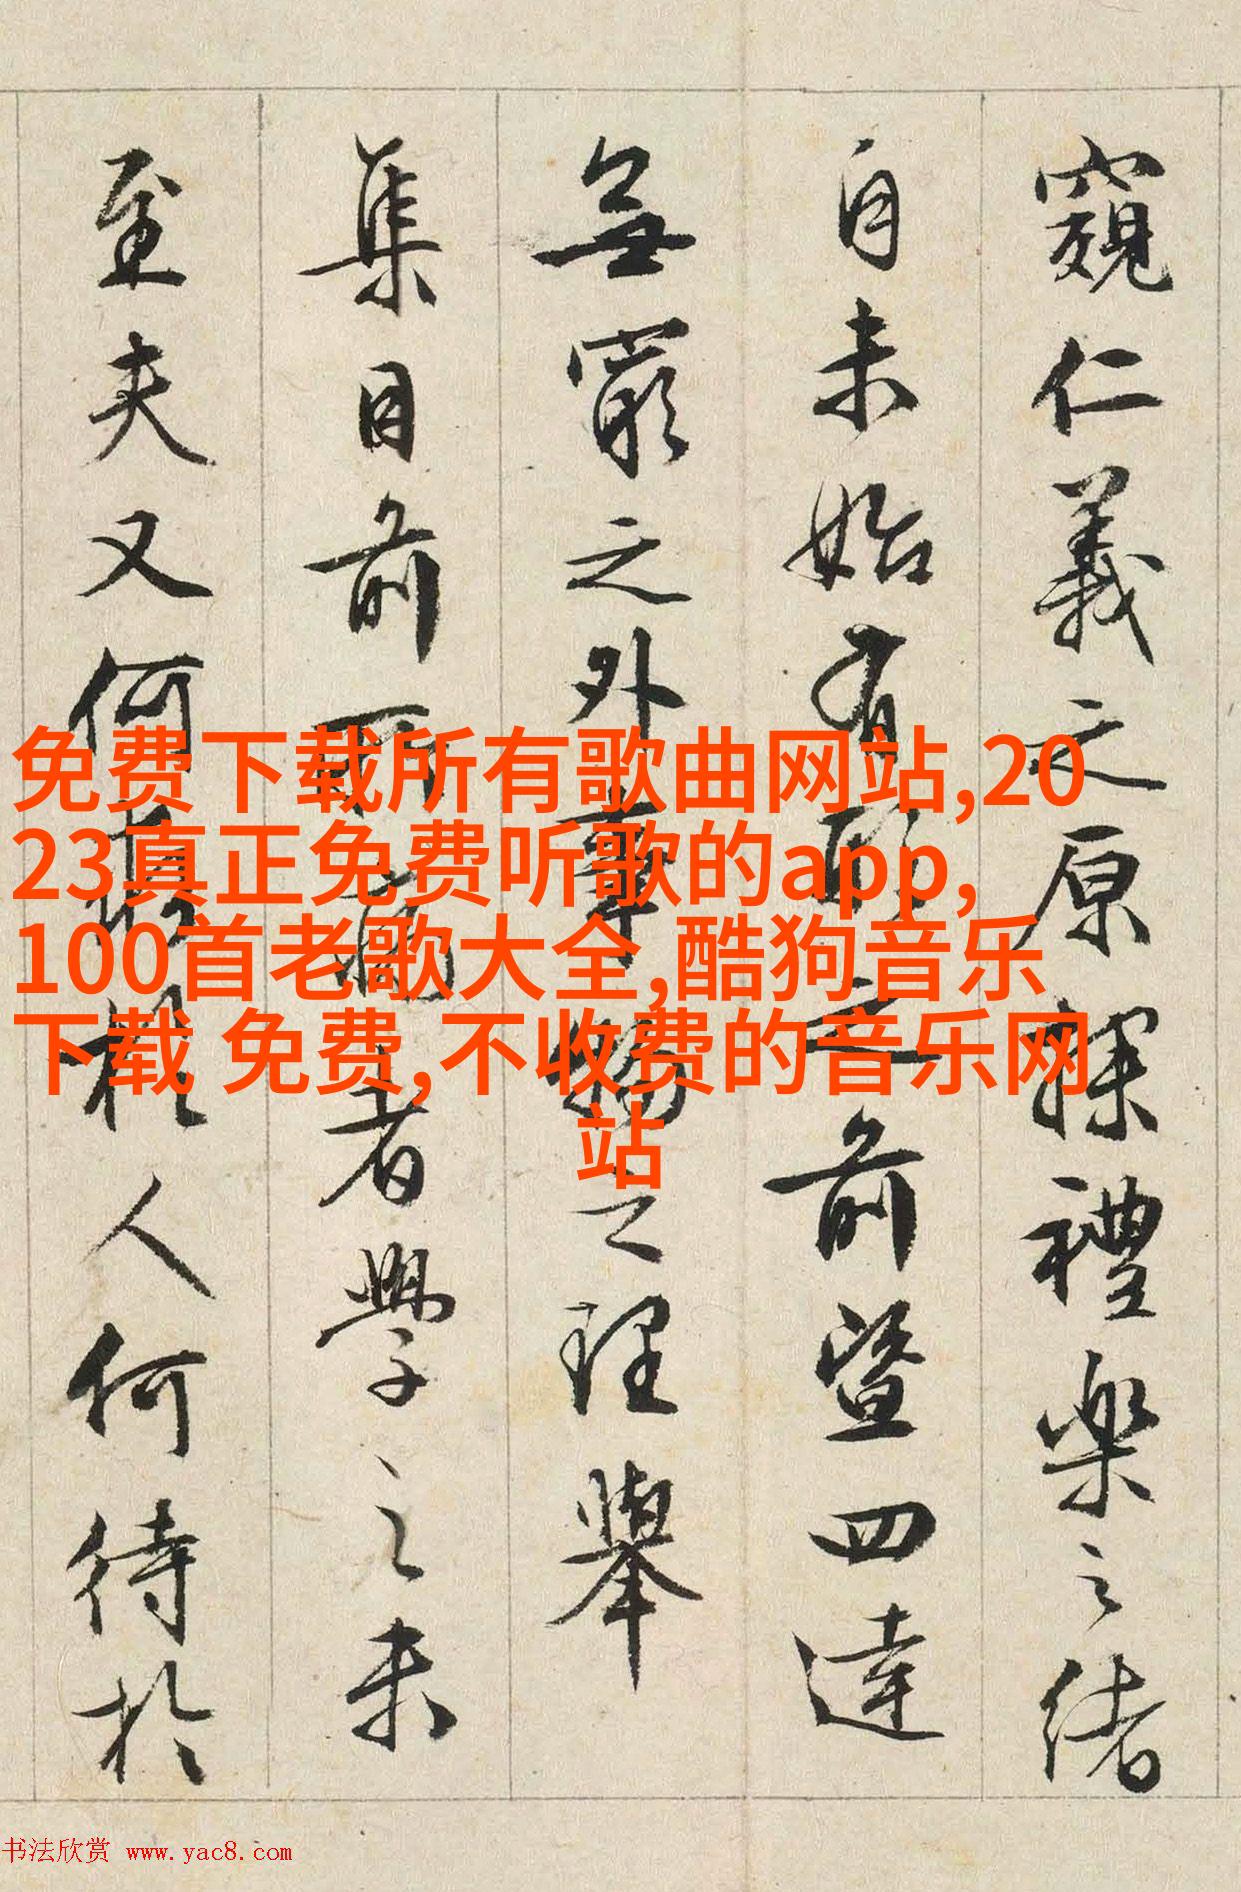 窺仁義之原探禮樂之緒
自未始有形之前暨四達
無窮之外事物之理舉
集目前所病者學之未
至夫又何於人何待於
免费下载所有歌曲网站,20
23真正免费听歌的app,
100首老歌大全,酷狗音乐
下载 免费,不收费的音乐网
站
书法欣赏 www.yac8.com